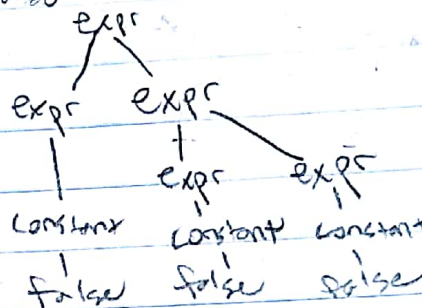 expr
expr expr
expr expr
constant constant constant
false false false